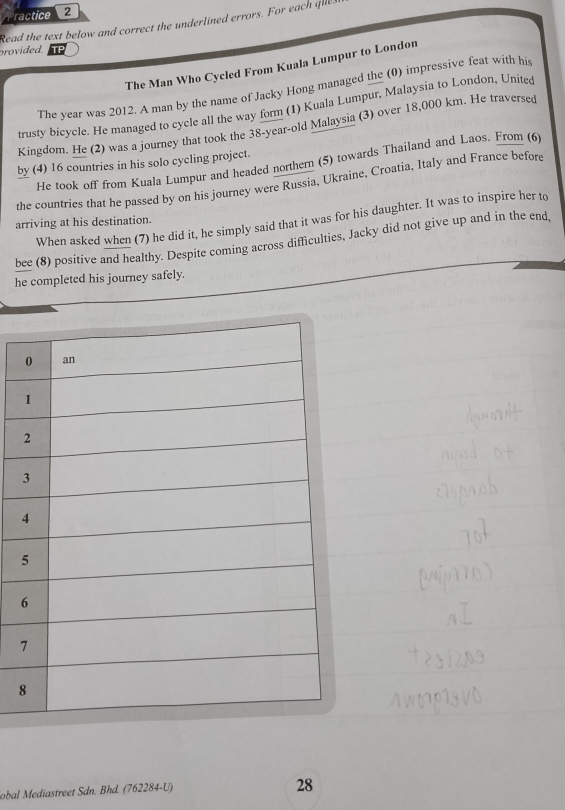 Practice 2
Read the text below and correct the underlined errors. For each
provided. TP
The Man Who Cycled From Kuala Lumpur to London
The year was 2012. A man by the name of Jacky Hong managed the (0) impressive feat with his
trusty bicycle. He managed to cycle all the way form (1) Kuala Lumpur, Malaysia to London, United
Kingdom. He (2) was a journey that took the 38-year-old Malaysia (3) over 18,000 km. He traversed
by (4) 16 countries in his solo cycling project.
He took off from Kuala Lumpur and headed northern (5) towards Thailand and Laos. From (6)
the countries that he passed by on his journey were Russia, Ukraine, Croatia, Italy and France before
arriving at his destination.
When asked when (7) he did it, he simply said that it was for his daughter. It was to inspire her to
bee (8) positive and healthy. Despite coming across difficulties, Jacky did not give up and in the end,
he completed his journey safely.
0 an
1
2
3
4
5
6
7
8
obal Mediastreet Sdn. Bhd. (762284-U)
28